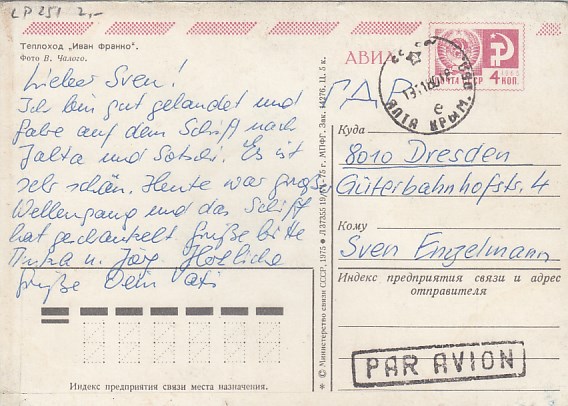 LP 251 2,-
Теплоход „Иван Франко".
Фото В. Чалого.
АВИА
ПОЧТА СССР
1966
4 КОП.
ЯЛТА КРЫМ.
е
Lieber Sven!
Ich bin gut gelandet und
fahre auf dem Schiff nach
Jalta und Sotschi. Es ist
sehr schön. Heute war großer
Wellengang und das Schiff
hat geschaukelt. Grüße bitte
u. Jörg. Herzliche
Grüße Dein Vati
ГДР
Куда
8010 Dresden
Güterbahnhofstr. 4
Кому
Sven Engelmann
Индекс предприятия связи и адрес
отправителя
PAR AVION
Индекс предприятия связи места назначения.
© Министерство связи СССР, 1975 • Л 37355 19/VI-75 г. МПФГ. Зак. 14276. Ц. 5 к.